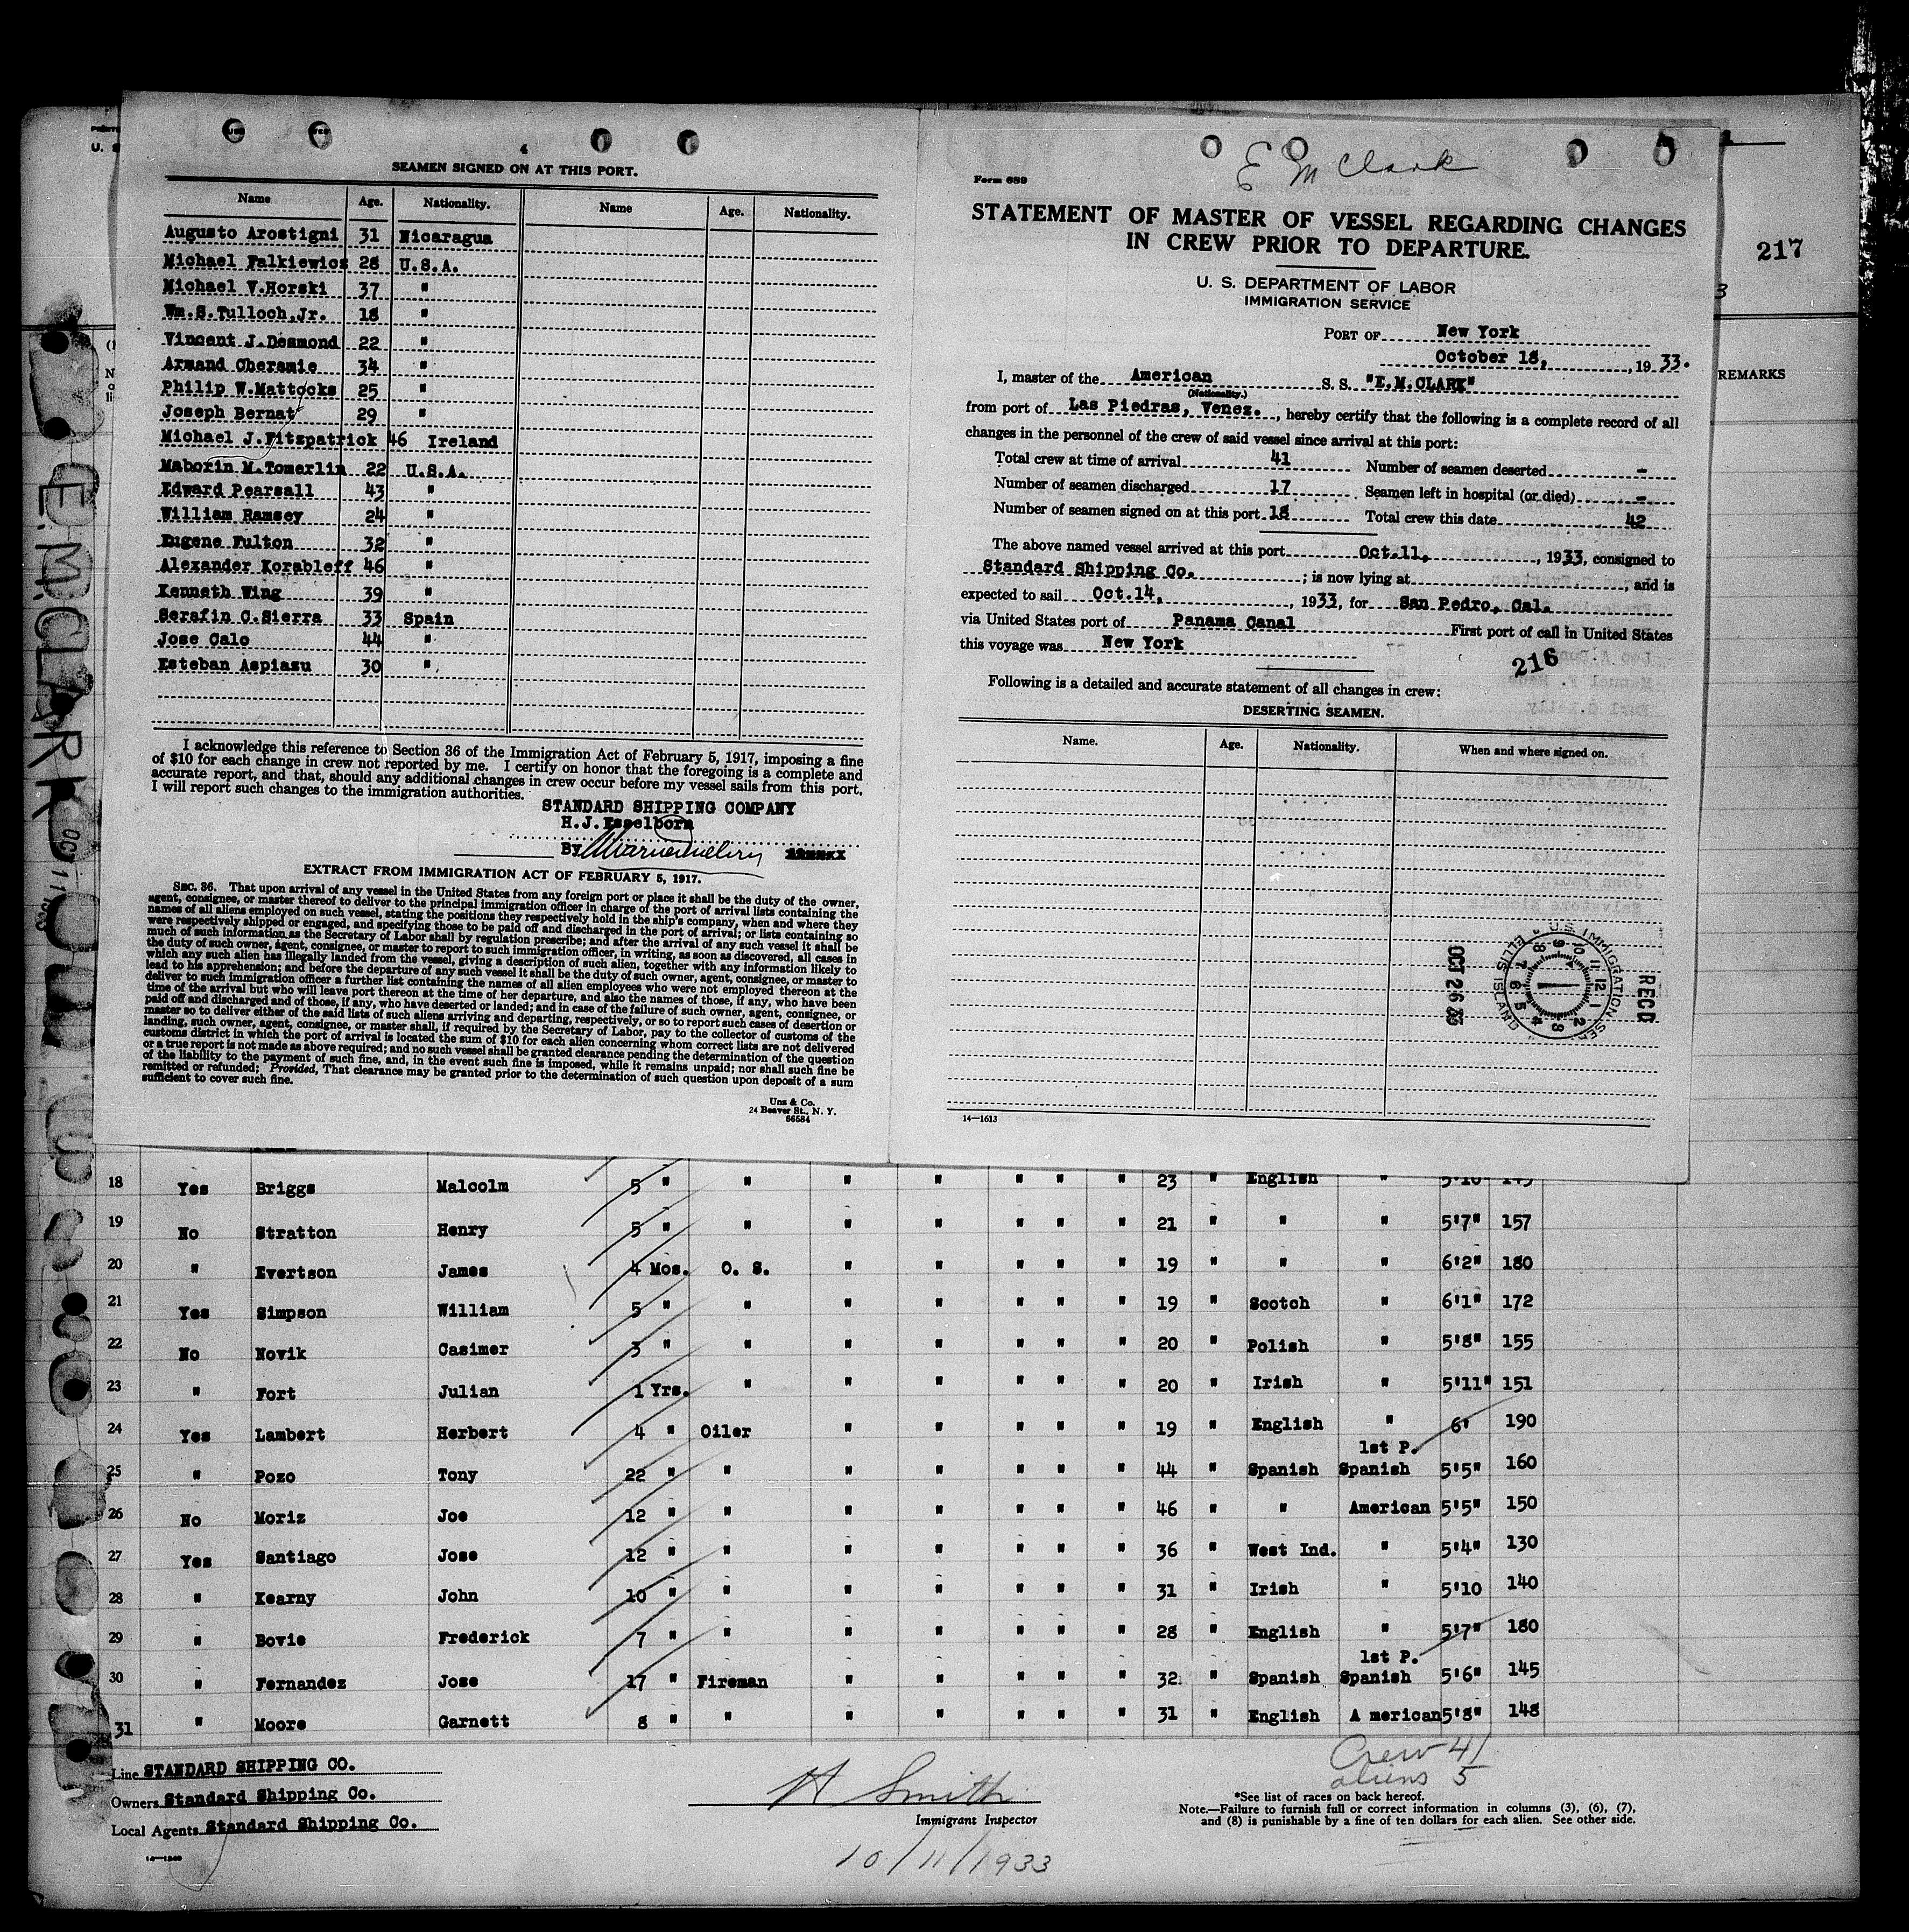 4
SEAMEN SIGNED ON AT THIS PORT.
Name Age. Nationality. Name Age. Nationality.
Augusto Arostigni 31 Nicaragua
Michael Falkiewicz 28 U.S.A.
Michael V.Horski 37 "
Wm.S.Tulloch,Jr. 18 "
Vincent J.Desmond 22 "
Armand Cheramie 34 "
Philip W.Mattocks 25 "
Joseph Bernat 29 "
Michael J.Fitzpatrick 46 Ireland
Maborin M.Tomerlin 22 U.S.A.
Edward Pearsall 43 "
William Ramsey 24 "
Eugene Fulton 32 "
Alexander Korableff 46 "
Kenneth Wing 39 "
Serafin C.Sierra 33 Spain
Jose Calo 44 "
Esteban Aspiazu 30 "
I acknowledge this reference to Section 36 of the Immigration Act of February 5, 1917, imposing a fine
of $10 for each change in crew not reported by me. I certify on honor that the foregoing is a complete and
accurate report, and that, should any additional changes in crew occur before my vessel sails from this port,
I will report such changes to the immigration authorities.
STANDARD SHIPPING COMPANY
H.J.Esselborn
By
EXTRACT FROM IMMIGRATION ACT OF FEBRUARY 5, 1917.
SEC. 36. That upon arrival of any vessel in the United States from any foreign port or place it shall be the duty of the owner,
agent, consignee, or master thereof to deliver to the principal immigration officer in charge of the port of arrival lists containing the
names of all aliens employed on such vessel, stating the positions they respectively hold in the ship's company, when and where they
were respectively shipped or engaged, and specifying those to be paid off and discharged in the port of arrival; or lists containing so
much of such information as the Secretary of Labor shall by regulation prescribe; and after the arrival of any such vessel it shall be
the duty of such owner, agent, consignee, or master to report to such immigration officer, in writing, as soon as discovered, all cases in
which any such alien has illegally landed from the vessel, giving a description of such alien, together with any information likely to
lead to his apprehension; and before the departure of any such vessel it shall be the duty of such owner, agent, consignee, or master to
deliver to such immigration officer a further list containing the names of all alien employees who were not employed thereon at the
time of the arrival but who will leave port thereon at the time of her departure, and also the names of those, if any, who have been
paid off and discharged and of those, if any, who have deserted or landed; and in case of the failure of such owner, agent, consignee, or
master so to deliver either of the said lists of such aliens arriving and departing, respectively, or so to report such cases of desertion or
landing, such owner, agent, consignee, or master shall, if required by the Secretary of Labor, pay to the collector of customs of the
customs district in which the port of arrival is located the sum of $10 for each alien concerning whom correct lists are not delivered
or a true report is not made as above required; and no such vessel shall be granted clearance pending the determination of the question
of the liability to the payment of such fine, and, in the event such fine is imposed, while it remains unpaid; nor shall such fine be
remitted or refunded; Provided, That clearance may be granted prior to the determination of such question upon deposit of a sum
sufficient to cover such fine.
Unz & Co.
24 Beaver St., N. Y.
66584
E M Clark
Form 689
STATEMENT OF MASTER OF VESSEL REGARDING CHANGES
IN CREW PRIOR TO DEPARTURE.
U. S. DEPARTMENT OF LABOR
IMMIGRATION SERVICE
PORT OF New York
October 18, , 19 33.
I, master of the American S. S. "E.M.CLARK"
(Nationality.)
from port of Las Piedras, Venez. , hereby certify that the following is a complete record of all
changes in the personnel of the crew of said vessel since arrival at this port:
Total crew at time of arrival 41 Number of seamen deserted -
Number of seamen discharged 17 Seamen left in hospital (or died) -
Number of seamen signed on at this port 18 Total crew this date 42
The above named vessel arrived at this port Oct.11, , 1933, consigned to
Standard Shipping Co. ; is now lying at , and is
expected to sail Oct.14, , 1933, for San Pedro, Cal.
via United States port of Panama Canal First port of call in United States
this voyage was New York
216
Following is a detailed and accurate statement of all changes in crew:
DESERTING SEAMEN.
Name. Age. Nationality. When and where signed on.
REC'D
U.S. IMMIGRATION SER. ELLIS ISLAND
OCT 26 33
14—1613
217
REMARKS
E.M.CLARK
OCT 11 1933
18 Yes Briggs Malcolm 5 " " " " " " " 23 " English " 5'10 145
19 No Stratton Henry 5 " " " " " " " 21 " " " 5'7" 157
20 " Evertson James 4 Mos. O. S. " " " " " 19 " " " 6'2" 180
21 Yes Simpson William 5 " " " " " " " 19 " Scotch " 6'1" 172
22 No Novik Casimer 3 " " " " " " " 20 " Polish " 5'8" 155
23 " Fort Julian 1 Yrs. " " " " " " 20 " Irish " 5'11" 151
24 Yes Lambert Herbert 4 " Oiler " " " " " 19 " English " 6' 190
1st P.
25 " Pozo Tony 22 " " " " " " " 44 " Spanish Spanish 5'5" 160
26 No Moriz Joe 12 " " " " " " " 46 " " American 5'5" 150
27 Yes Santiago Jose 12 " " " " " " " 36 " West Ind. " 5'4" 130
28 " Kearny John 10 " " " " " " " 31 " Irish " 5'10 140
29 " Bovie Frederick 7 " " " " " " " 28 " English " 5'7" 180
1st P.
30 " Fernandez Jose 17 " Fireman " " " " " 32 " Spanish Spanish 5'6" 145
31 " Moore Garnett 8 " " " " " " " 31 " English A merican 5'8" 148
Line STANDARD SHIPPING CO.
Owners Standard Shipping Co.
Local Agents Standard Shipping Co.
H Smith
Immigrant Inspector
10/11/1933
Crew 41
aliens 5
*See list of races on back hereof.
Note.—Failure to furnish full or correct information in columns (3), (6), (7),
and (8) is punishable by a fine of ten dollars for each alien. See other side.